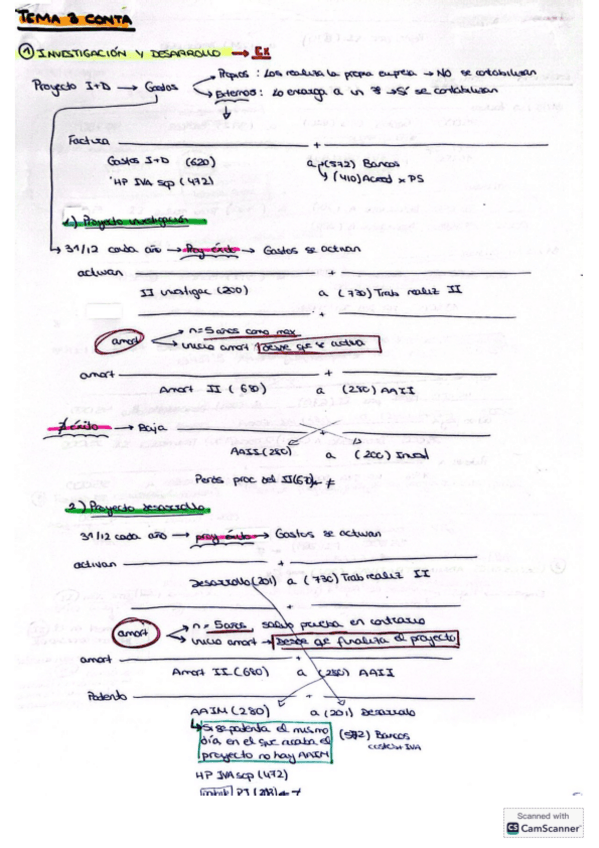 TEMA 3 CONTA
① INVESTIGACIÓN Y DESARROLLO → EX
Propios : Los realiza la propia empresa → NO se contabilizan
Proyecto I+D → Gastos
Externos : Lo encarga a un 3º → Sí se contabilizan
Factura +
Gastos I+D (620) a (572) Bancos
HP IVA sop (472) (410) Acreed x PS
1) Proyecto investigación
31/12 cada año → Proy éxito → Gastos se activan
activan +
II investigac (200) a (730) Trab realiz II
+
n = 5 años como max
amort
inicio amort desde que se activa
amort +
Amort II (680) a (280) AAII
∄ éxito → Baja
AAII (280) a (200) Invest
Perds proc del II (670) ← ≠
2) Proyecto desarrollo
31/12 cada año → proy éxito → Gastos se activan
activan +
Desarrollo (201) a (730) Trab realiz II
+
n = 5 años, salvo prueba en contrario
amort
inicio amort → Desde qe finaliza el proyecto
amort +
Amort II (680) a (280) AAII
Patente +
AAIM (280) a (201) Desarrollo
Si se patenta el mismo
día en el que acaba el
proyecto no hay AAIM
(572) Bancos
coste sin IVA
HP IVA sop (472)